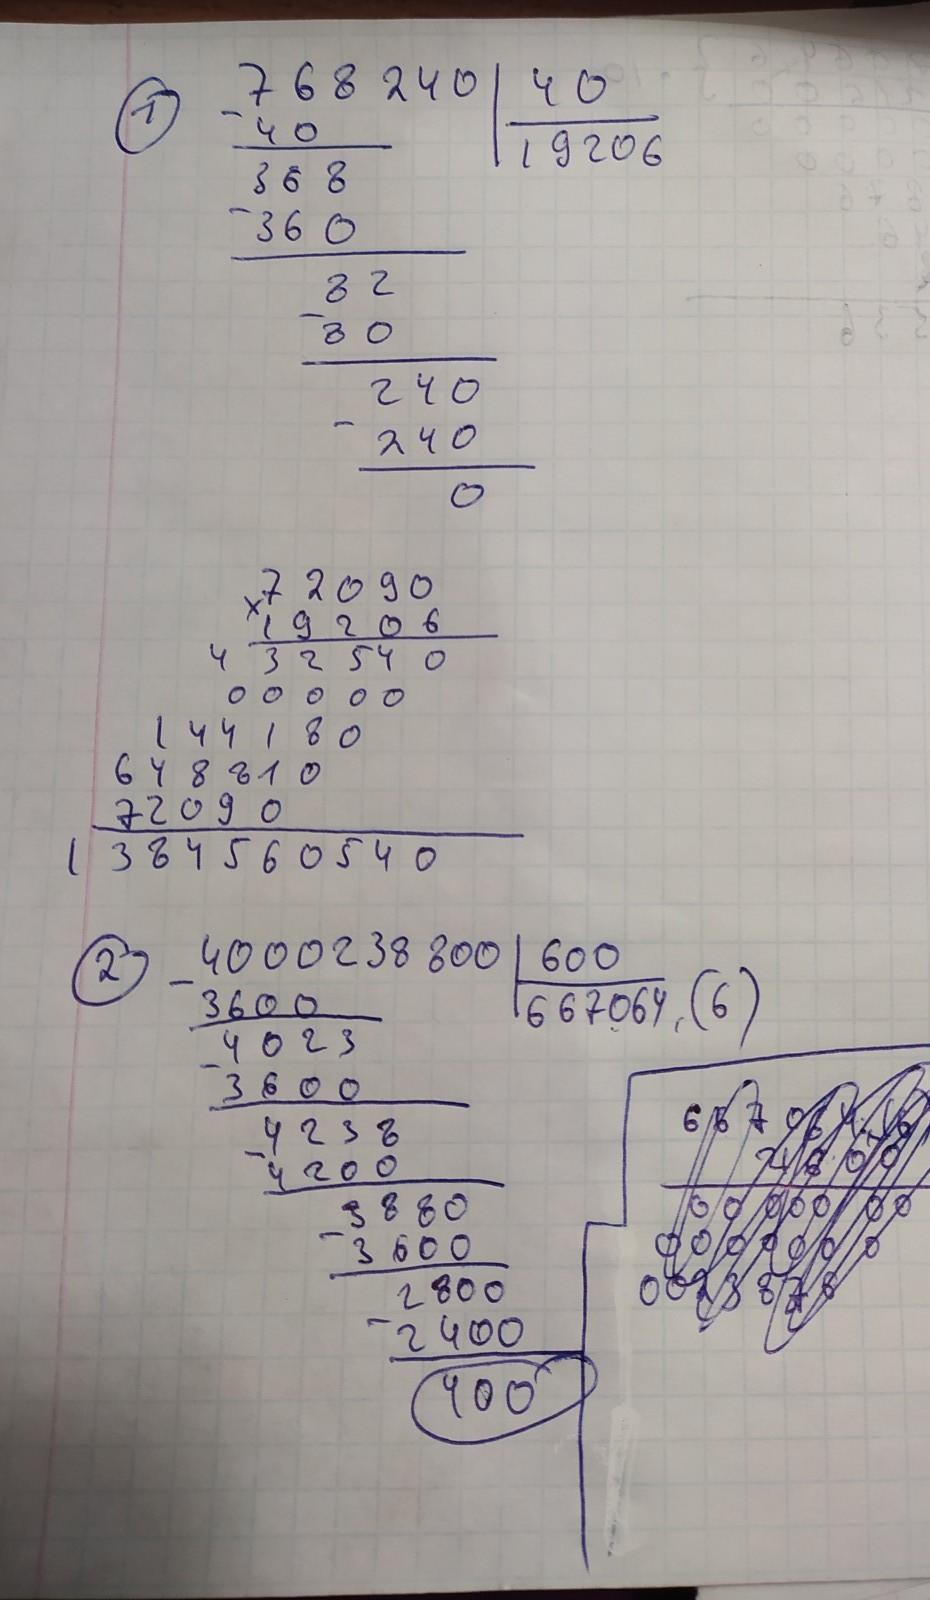 1 768240 40
- 40 19206
368
- 360
82
- 80
240
- 240
0
72090
x 19206
432540
00000
144180
648810
72090
1384560540
2 4000238800 600
- 3600 667064,(6)
4023
- 3600
4238
- 4200
3880
- 3600
2800
- 2400
400